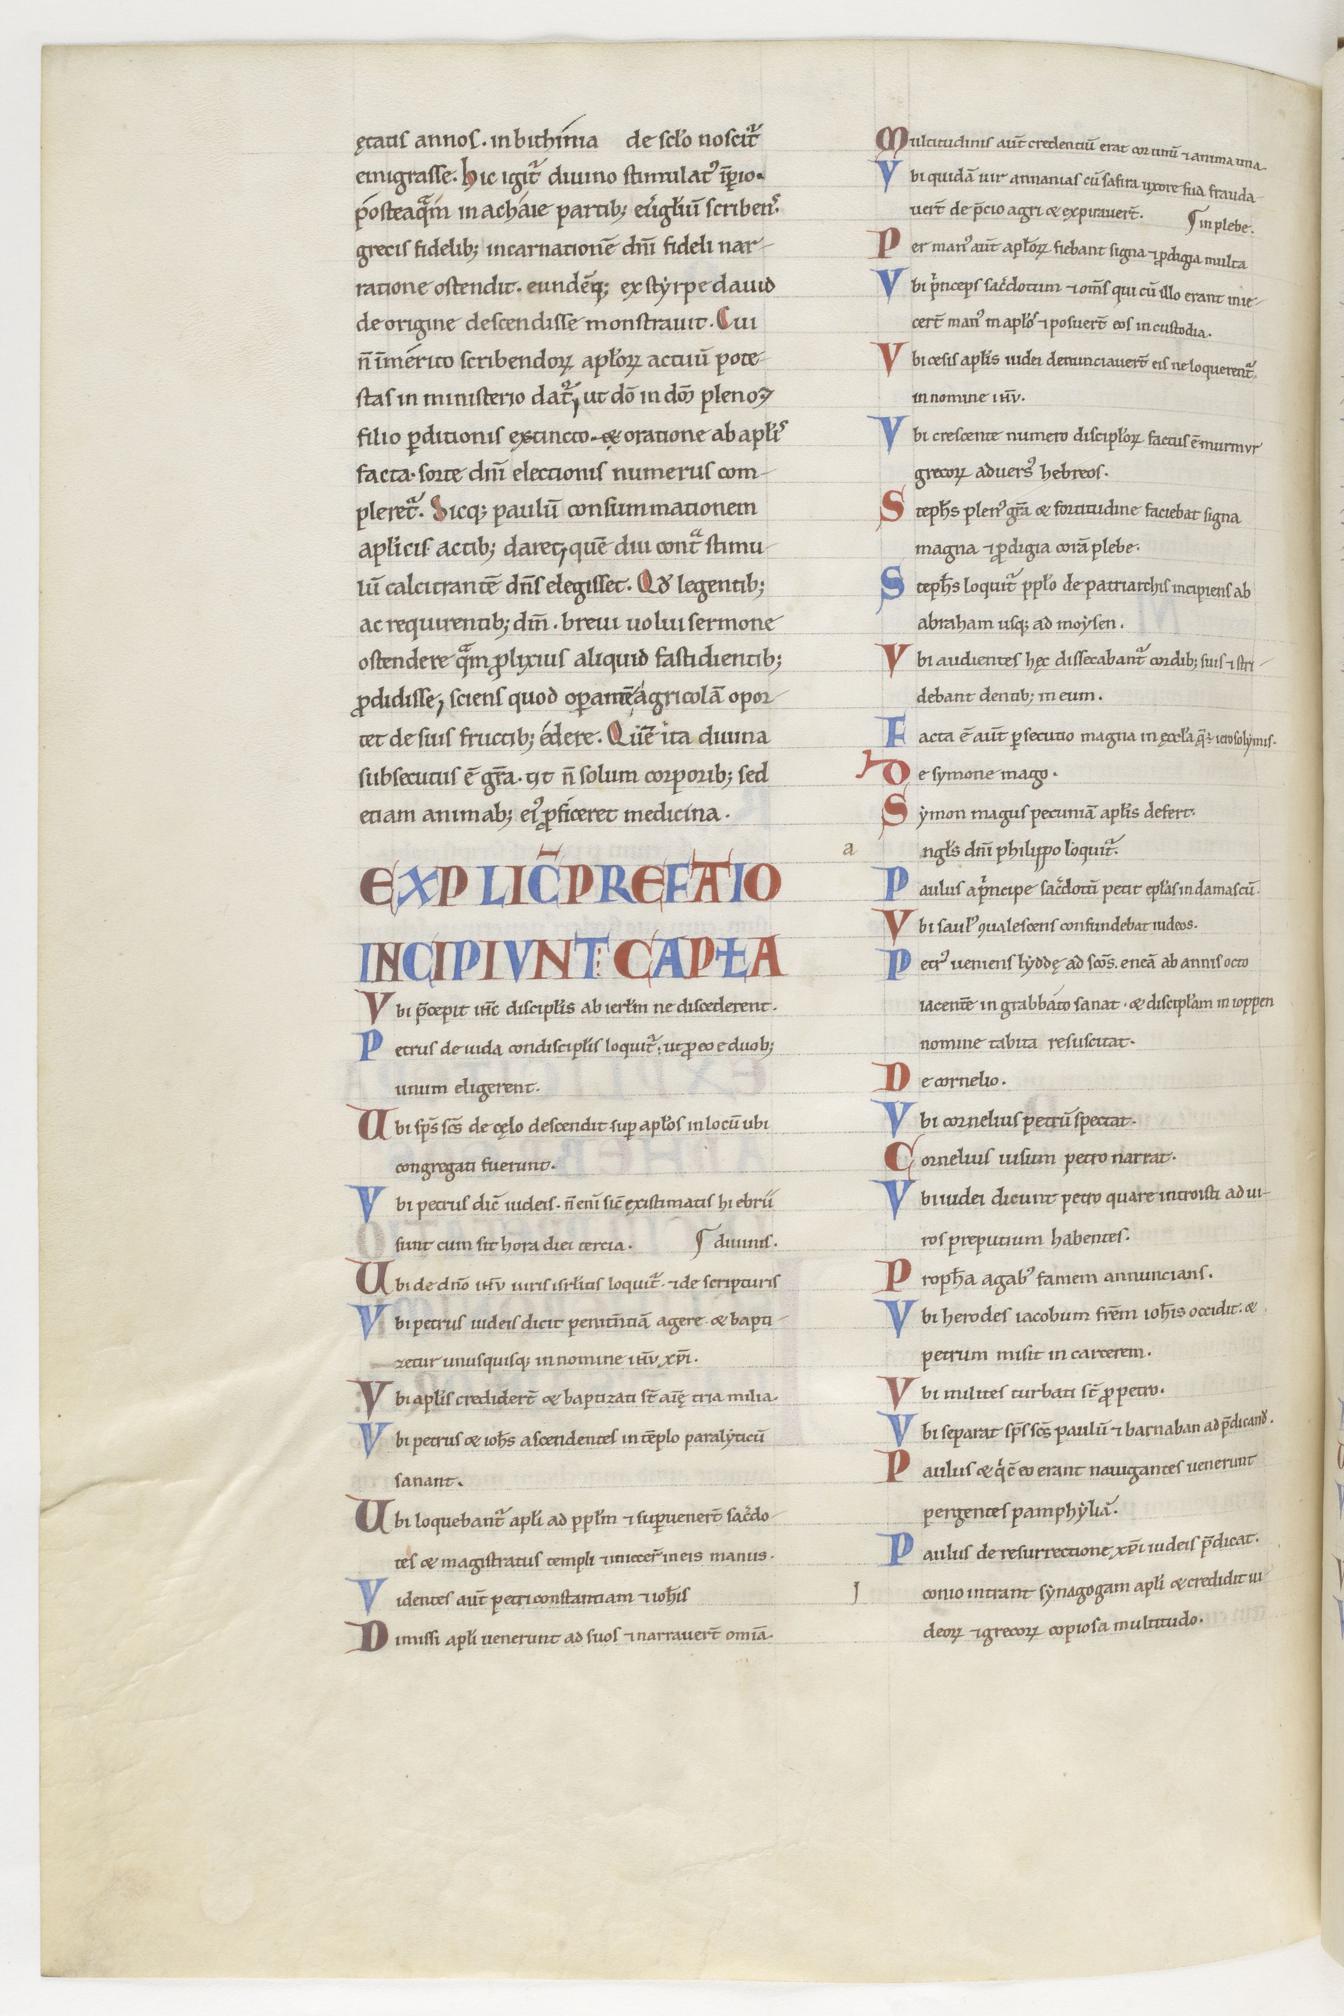 ętatis annos. in bithinia de sc̄lo noscit᷑
emigrasse. hic igit᷑ diuino stimulatꝰ īꝑio.
posteaqᷓm in achaie partib; euͣgłiū scribenꝭ
grecis fidelib; incarnationē dn̄i fideli nar-
ratione ostendit. eundēq; ex styrpe dauid
de origine descendisse monstrauit. Cui
n̄ īmerito scribendoꝝ aplōꝝ actiuū pote-
stas in ministerio dat᷑, ut dō in dō pleno ⁊
filio ꝑditionis extincto. & oratione ab apłiꝭ
facta. sorte dn̄i electionis numerus com-
pleret᷑. Sicq; paulū consummationem
aplicis actib; daret, quē diu contᷓ stimu-
lū calcitrantē dn̄s elegisset. Qđ legentib;
ac requirentib; dm̄. breui uolui sermone
ostendere qᷓm ꝓlixius aliquid fastidientib;
ꝓdidisse, sciens quod oꝑantē agricolā opor-
tet de suis fructib; edere. Quē ita diuina
subsecutus ē gr̄a. ut n̄ solum corporib; sed
etiam animab; eiꝰ ꝓficeret medicina.
EXPLIC̄ PREFATIO
INCIPIVNT CAPŁA
Vbi p̄cepit ihc̄ discipłis ab ierłm ne discederent.
Petrus de iuda condiscipłis loquit᷑. ut ꝓ eo e duob;
unum eligerent.
Ubi sp̄s sc̄s de cęlo descendit suꝑ apłos in locū ubi
congregati fuerunt.
Vbi petrus dic̄ iudeis. n̄ eni sic̄ existimatis hi ebrii
sunt cum sit hora diei tercia. ¶ diuinis.
Ubi de dn̄o ihū uiris isrłitis loquit᷑. ⁊ de scripturis
Vbi petrus iudeis dicit penitn̄tiā agere & bapti-
zetur unusquisq; in nomine ihū xp̄i.
Vbi apłis credider̄t & baptizati st̄ aīę tria milia.
Vbi petrus & ioh̄s ascendentes in tēplo paralyticū
sanant.
Ubi loquebant᷑ apłi ad ppłm ⁊ suꝑuener̄t sac̄do-
tes & magistratus templi ⁊ iniecer̄ in eis manus.
Videntes aūt petri constantiam ⁊ ioh̄is
Dimissi apłi uenerunt ad suos ⁊ narrauer̄t omīa.
Multitudinis aūt credentiū erat cor unū ⁊ anima una.
Vbi quidā uir annanias cū safira uxore sua frauda-
uer̄t de p̄cio agri & expirauer̄t. ¶ in plebe.
Per manꝰ aūt apłoꝝ fiebant signa ⁊ ꝓdigia multa
Vbi pͥnceps sac̄dotum ⁊ om̄s qui cū illo erant inie-
cer̄t manꝰ in apłos ⁊ posuer̄t eos in custodia.
Vbi cesis apłis iudei denunciauer̄t eis ne loquerent᷑
in nomine ihū.
Vbi crescente numero discipłoꝝ factus ē murmur
grecoꝝ aduersꝰ hebreos.
Steph̄s plenꝰ gr̄a & fortitudine faciebat signa
magna ⁊ ꝓdigia corā plebe.
Steph̄s loquit᷑ ppło de patriarchis incipiens ab
abraham usq; ad moysen.
Vbi audientes hęc dissecabant᷑ cordib; suis ⁊ stri-
debant dentib; in eum.
Facta ē aūt ꝑsecutio magna in ęccła q̄ ē ierosolymis.
De symone mago.
Symon magus pecuniā apłis defert.
a ngłs dn̄i philippo loquit᷑.
Paulus a pͥncipe sac̄dotū petit epłas in damascū.
Vbi saulꝰ ꝯualescens confundebat iudeos.
Petrꝰ ueniens lyddę ad scōs. eneā ab annis octo
iacentē in grabbato sanat. & discipłam in ioppen
nomine tabita resuscitat.
De cornelio.
Vbi cornelius petrū spectat.
Cornelius uisum petro narrat.
Vbi iudei dicunt petro quare introisti ad ui-
ros preputium habentes.
Proph̄a agabꝰ famem annuncians.
Vbi herodes iacobum frēm ioh̄is occidit. &
petrum misit in carcerem.
Vbi milites turbati st̄ ꝓ petro.
Vbi separat sp̄s sc̄s paulū ⁊ barnaban ad p̄dicand̄.
Paulus & qͥ c̄ eo erant nauigantes uenerunt
pergentes pamphyliā.
Paulus de resurrectione xp̄i iudeis p̄dicat.
I conio intrant synagogam apłi & credidit iu-
deoꝝ ⁊ grecoꝝ copiosa multitudo.